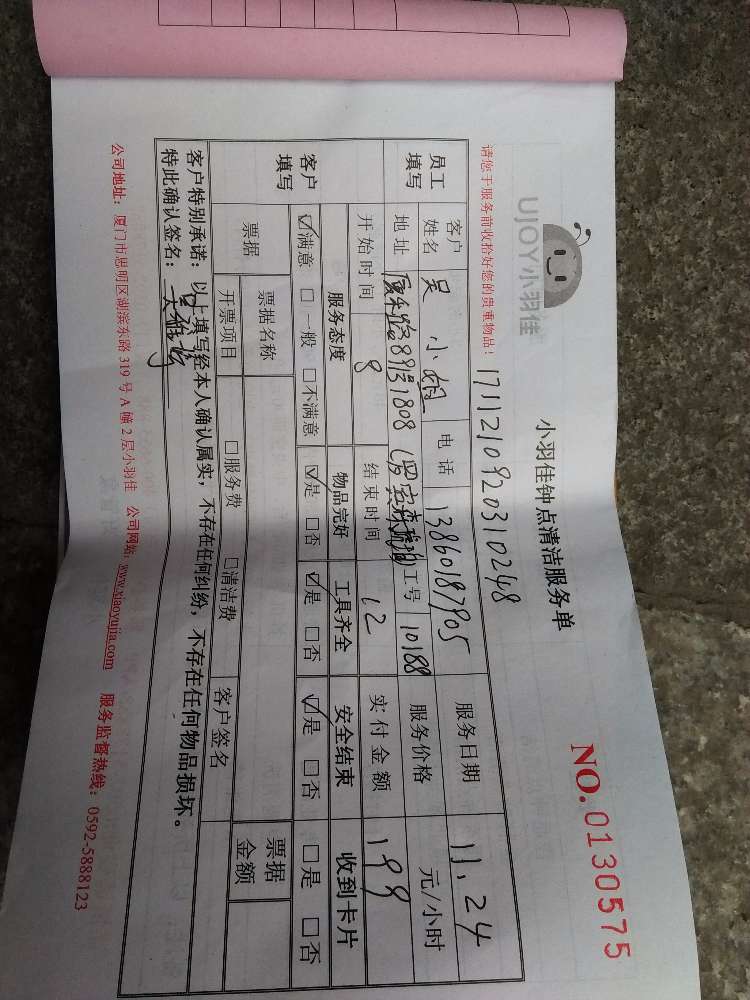 UJOY小羽佳
小羽佳钟点清洁服务单
NO.0130575
请您于服务前收拾好您的贵重物品！
1711210920310248
员工填写 客户姓名 吴小姐 电话 13860187905 服务日期 11.24
地址 89号1808 工号 10188 服务价格 元/小时
开始时间 8 结束时间 12 实付金额 199
客户填写 服务态度 物品完好 工具齐全 安全结束 收到卡片
☑满意 □一般 □不满意 ☑是 □否 ☑是 □否 ☑是 □否 □是 □否
票据 票据名称 □服务费 □清洁费 客户签名 票据金额
开票项目
客户特别承诺：以上填写经本人确认属实，不存在任何纠纷，不存在任何物品损坏。
特此确认签名：
公司地址：厦门市思明区湖滨东路 319 号 A 幢 2 层小羽佳 公司网站：www.xiaoyujia.com 服务监督热线：0592-5888123